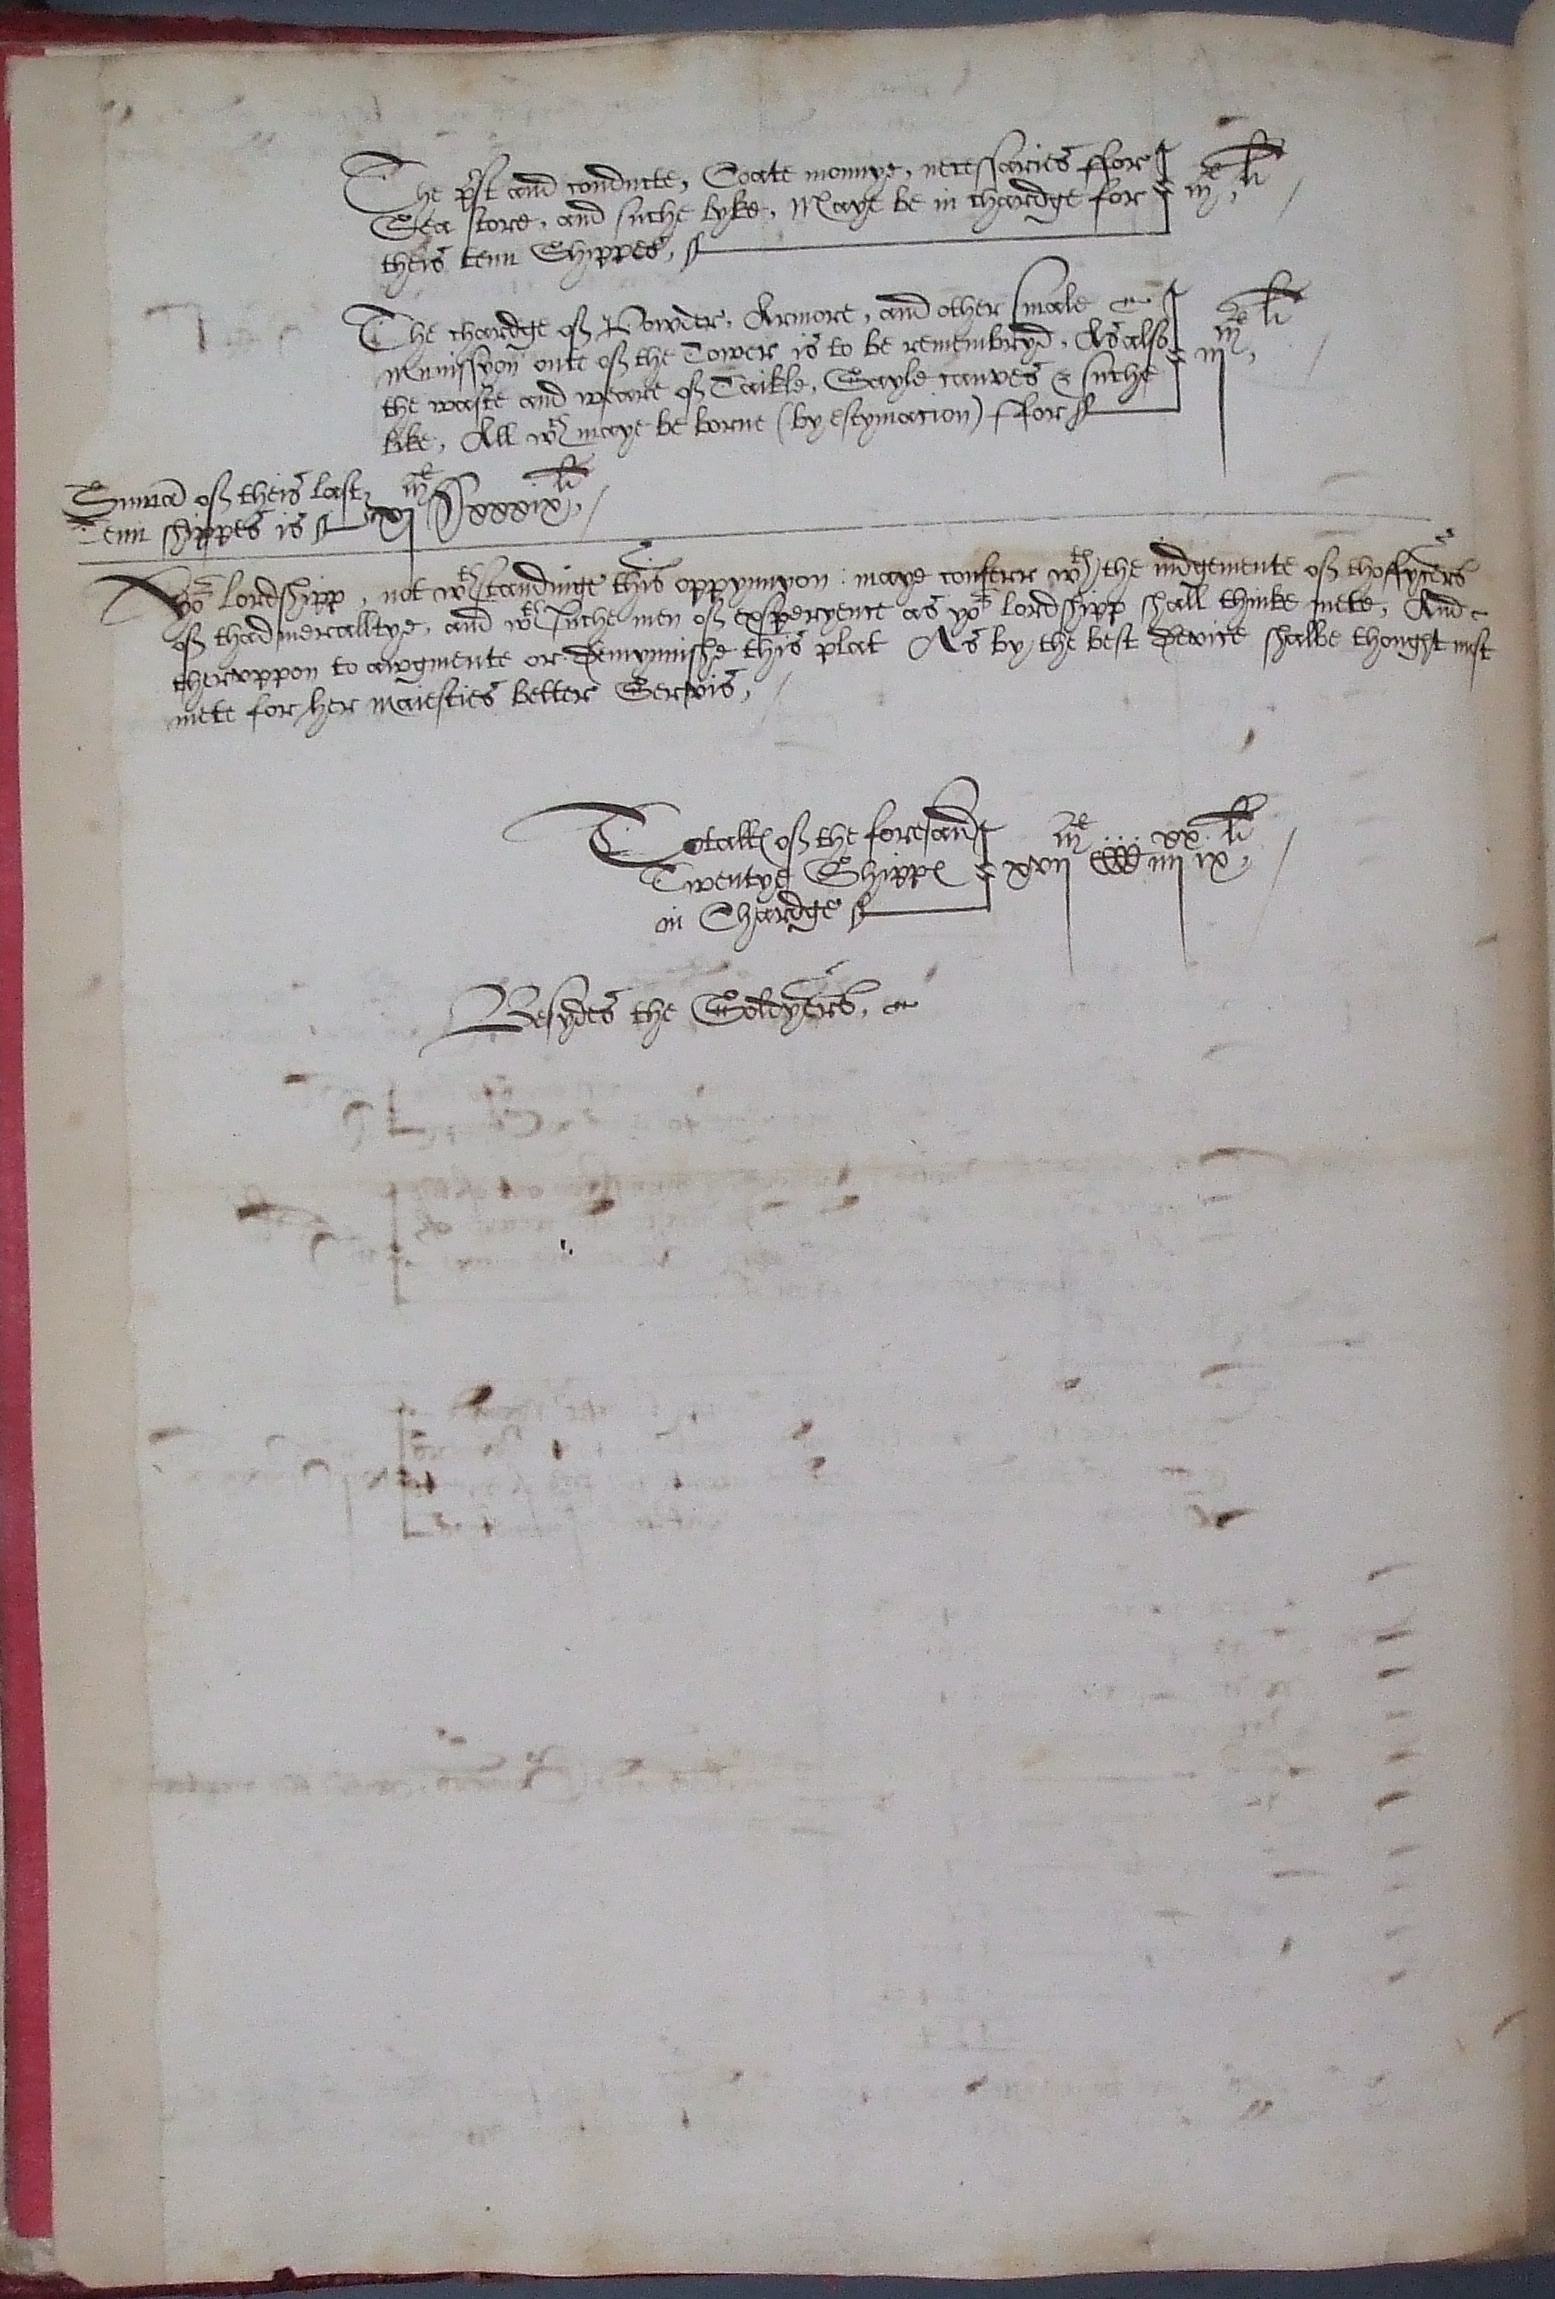 The p'st and conducte, Coate monnye, necessaries ffor
Sea store, and suche lyke, Maye be in chardge for
theis tenn Shippes,
mˡ li
The chardge of Powder, Armore, and other smale
mu'issyon oute of the Tower is to be remembryd, As also
the waste and weare of Taikle, Sayle canves & suche
like, All wᶜʰ maye be borne (by estymacion) ffor
iij mˡ li
Suma of theis last
Tenn shippes is
xj mˡ xxxix li
Yoʳ Lordshipp, not wᵗʰstandinge this oppynnyon: maye conferr wᵗʰ the iudgemente of thoffycers
of thadmeralltye, and wᵗʰ suche men of experyence as yoʳ lordshipp shall thinke mete, And
thervppon to awgmente or demynnishe this plat As by the best devise shalbe thought most
mete for her maiesties better Servis,
Totall of the foresaid
Twentye Shipp
in Chardge
xvij mˡ cccc iiij xx ix li
Besydes the Soldyers,